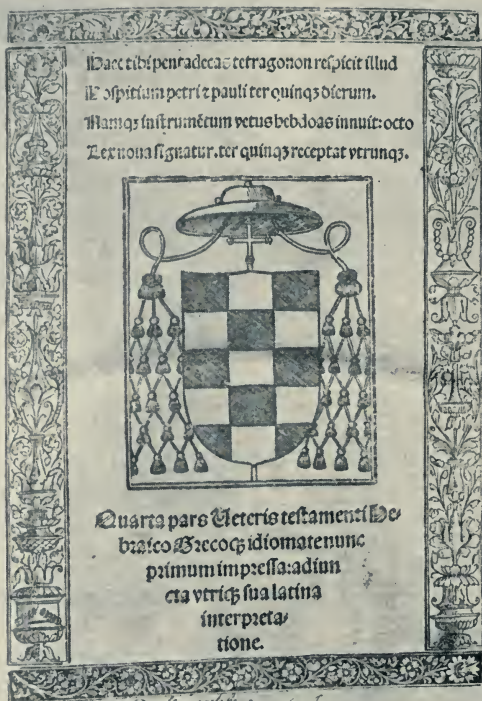 Haec tibi pentadecas tetragonon respicit illud
Hospitium petri ⁊ pauli ter quinqꝫ dierum.
Namqꝫ instrumētum vetus hebdoas innuit: octo
Lex noua signatur. ter quinqꝫ receptat vtrunqꝫ.
Quarta pars Veteris testamenti He-
braico Grecoqꝫ idiomate nunc
primum impressa: adiun
cta vtriqꝫ sua latina
interpreta/
tione.